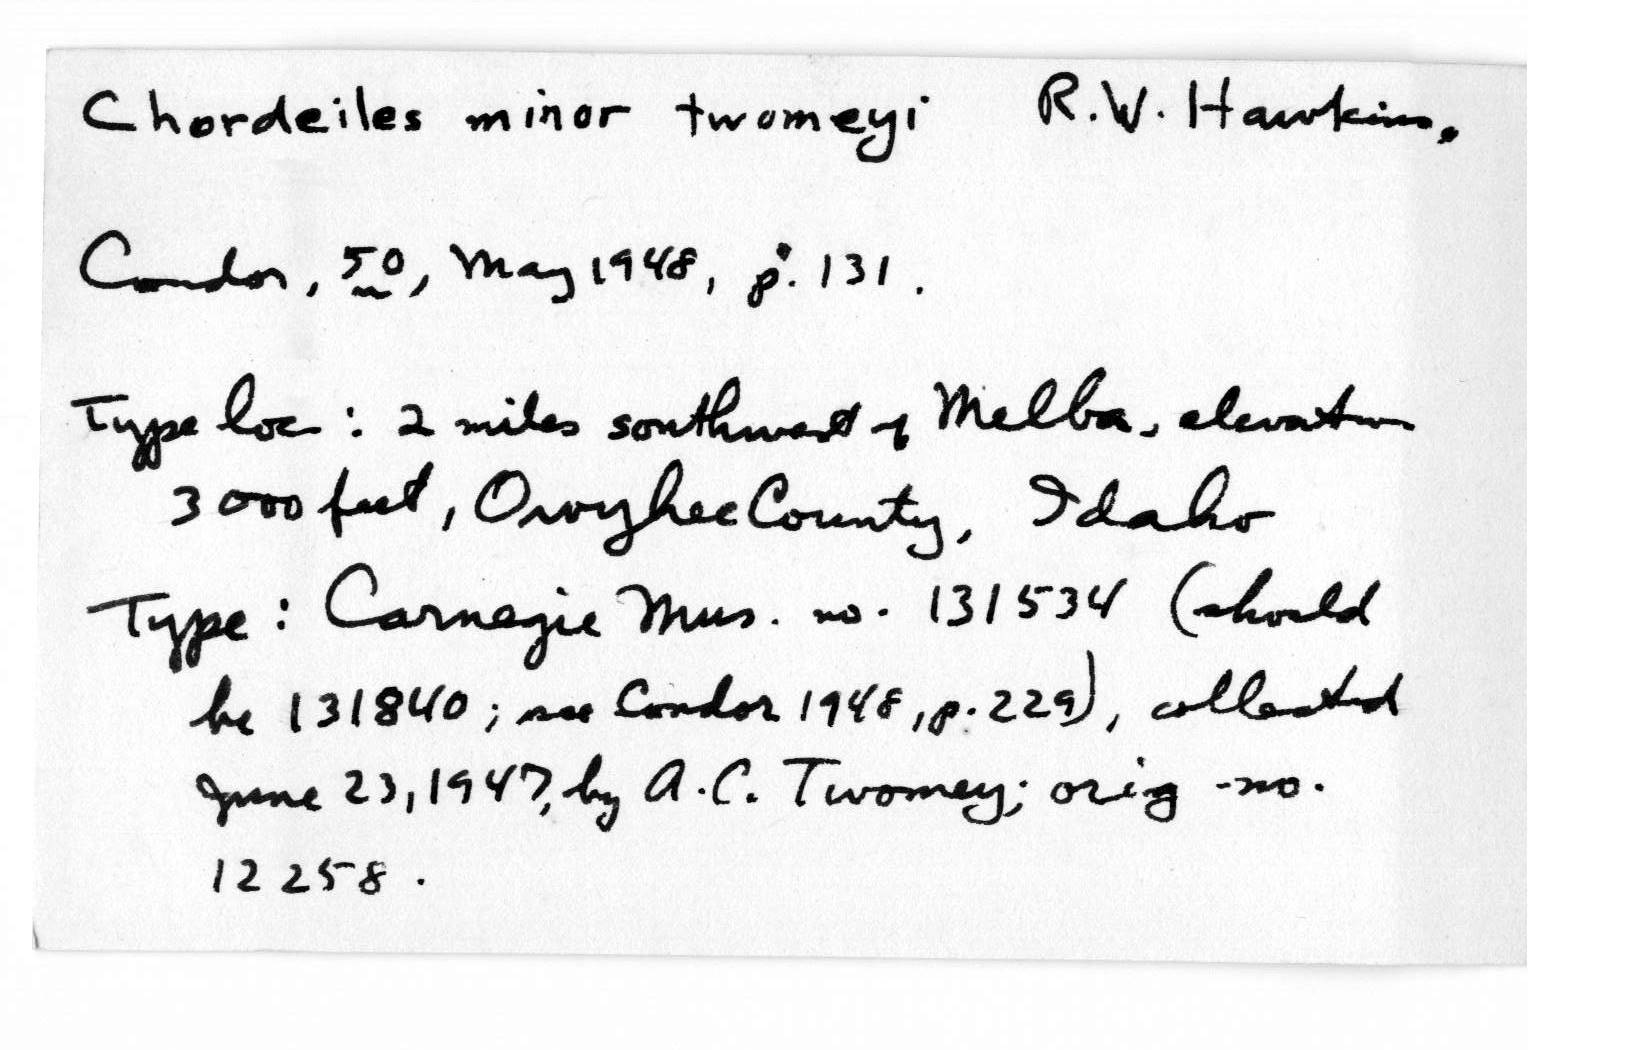 Chordeiles minor twomeyi R.W. Hawkins,
Condor, 50, May 1948, p. 131.
Type loc: 2 miles southwest of Melba, elevation
3000 feet, Owyhee County, Idaho
Type: Carnegie Mus. no. 131534 (should
be 131840; see Condor 1948, p. 229), collected
June 23, 1947, by A.C. Twomey; orig. no.
12258.